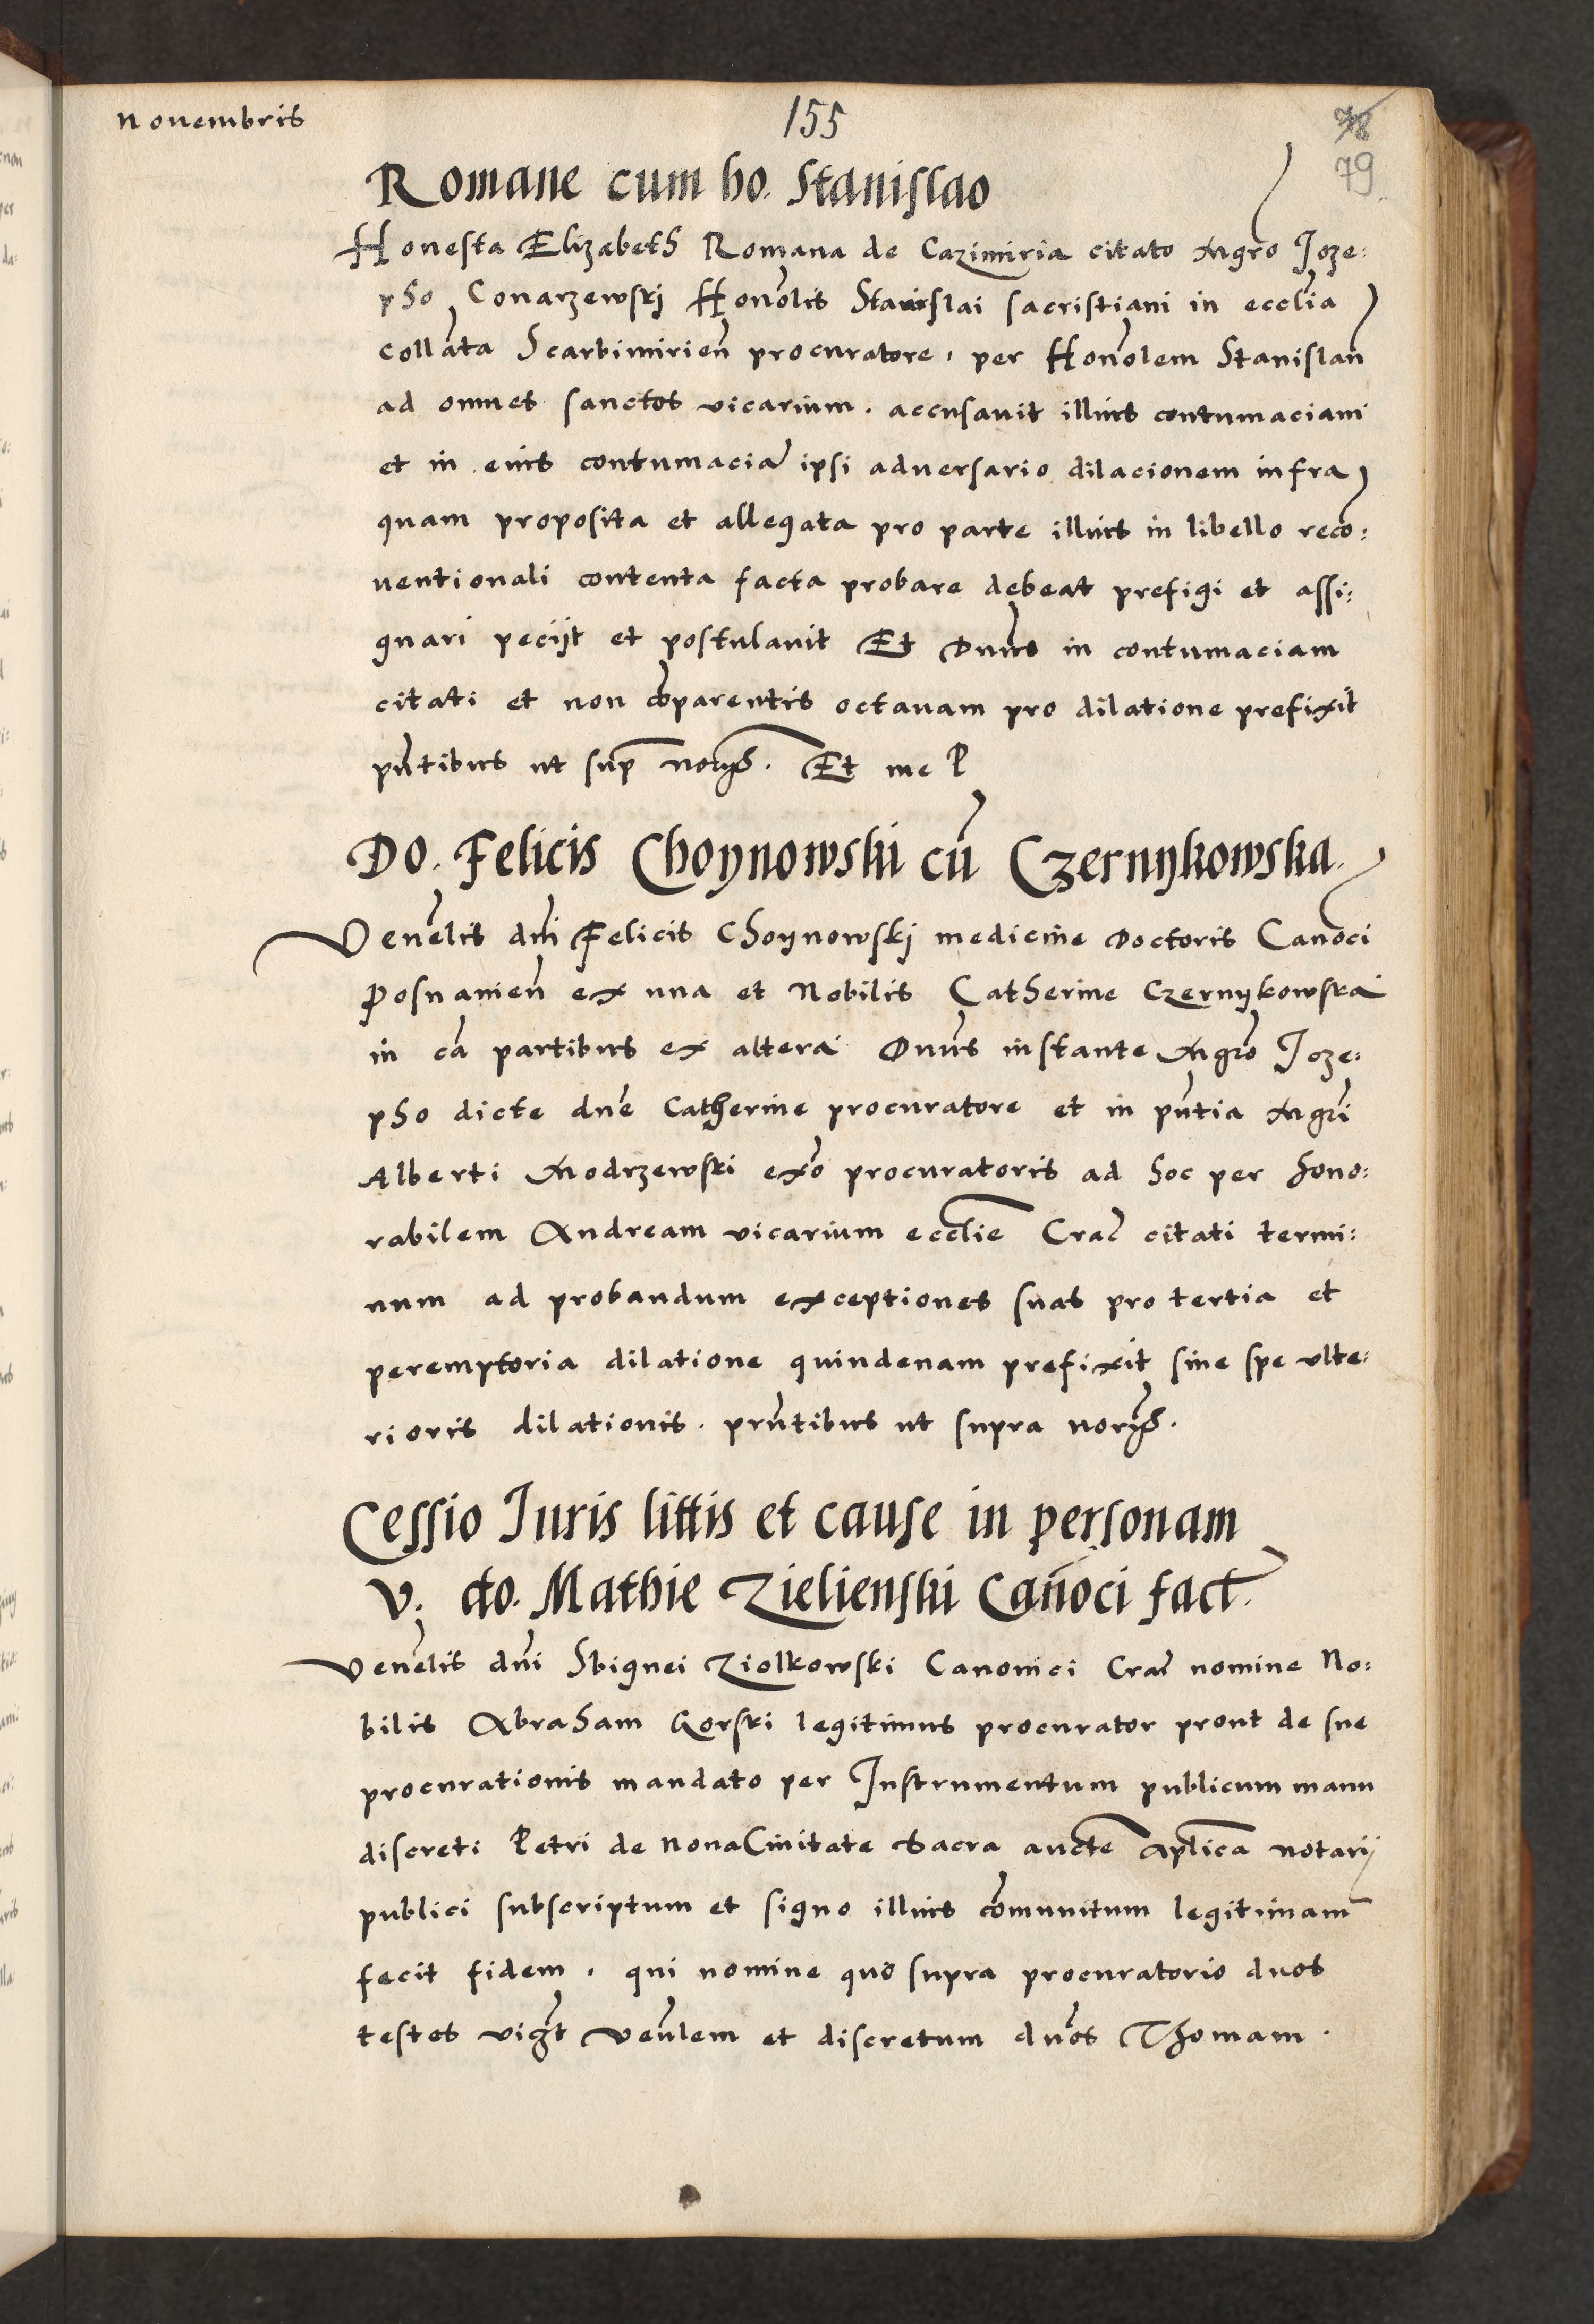 Novembris
155
78
79
Romane cum ho. Stanislao
Honesta Elizabeth Romana de Cazimiria citato Mgro Joze:
pho Conarzewskj Honōlis Stanislai sacristiani in ecclīa
collāta Scarbimirien̄ procuratore, per Honōlem Stanislau̅
ad omnes sanctos vicarium. accusauit illius contumaciam
et in eius contumacia̅ ipsi adversario dilacionem infra
quam proposita et allegata pro parte illius in libello reco̅:
uentionali contenta facta probare debeat prefigi et assi:
gnari pecijt et postulauit Et Dnu̅s in contumaciam
citati et non co̅parentis octauam pro dilatione prefixit
pn̄tibus ut sup̄ no̅rijs. Et me P
Do. Felicis Choynowski cū Czernykowska.
Venēlis dn̄i Felicis Choynowskj medicine Doctoris Cano̅ci
Posnanien̄ ex una et Nobilis Catherine Czernykowska
in ca̅ partibus ex altera Dnu̅s instante Mgro̅ Joze:
pho dicte dne̅ Catherine procuratore et in pn̄tia Mgri̅
Alberti Modrzewski exo̅ procuratoris ad hoc per hono:
rabilem Andream vicarium ecclīe Crac̄ citati termi:
num ad probandum exceptiones suas pro tertia et
peremptoria dilatione quindenam prefixit sine spe vlte:
rioris dilationis. prn̄tibus ut supra no̅rijs.
Cessio Juris littis et cause in personam
V. do. Mathie Zielienski Cano̅ci fact.
Venēlis dn̄i Sbignei Ziolkowski Canonici Crac̄ nomine No:
bilis Abraham Gorski legitimus procurator prout de sue
procurationis mandato per Instrumentum publicum manu
discreti Petri de NouaCiuitate Sacra aucte̅ aplīca notarij
publici subscriptum et signo illius co̅munitum legitimam
fecit fidem, qui nomine quo supra procuratorio duos
testes vigt̄ Venlēm et discretum dno̅s Thomam.